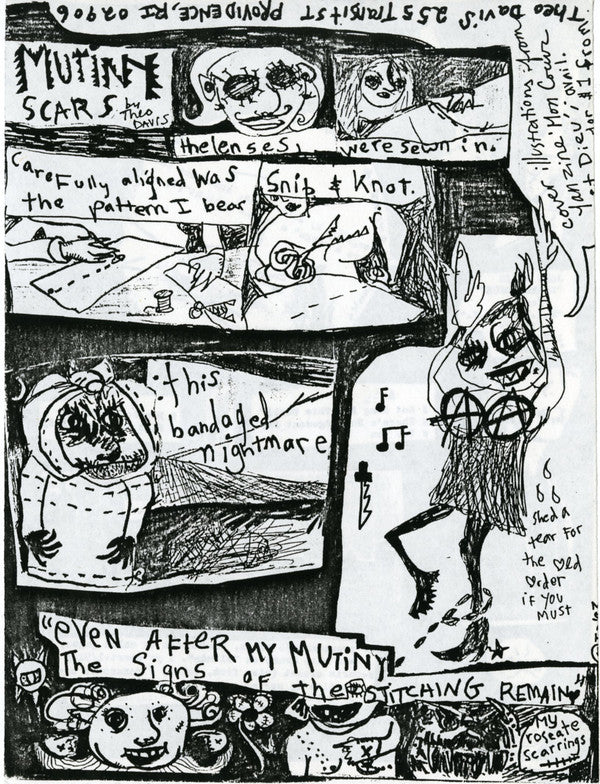 Theo Davis 255 Transit ST
PROVIDENCE, RI 02906
MUTINY
SCARS
by
THEO
DAVIS
the lenses,
were sewn in.
cover illustrations from
fanzine Mon Coeur
avail.
for $1 from
carefully aligned was
the pattern I bear
Snip & Knot.
this
bandaged
nightmare
shed a
tear For
the old
order
if you
must
"eVEN AFTER MY MUTINY
The Signs OF the STITCHING REMAIN"
My
roseate
scarrings